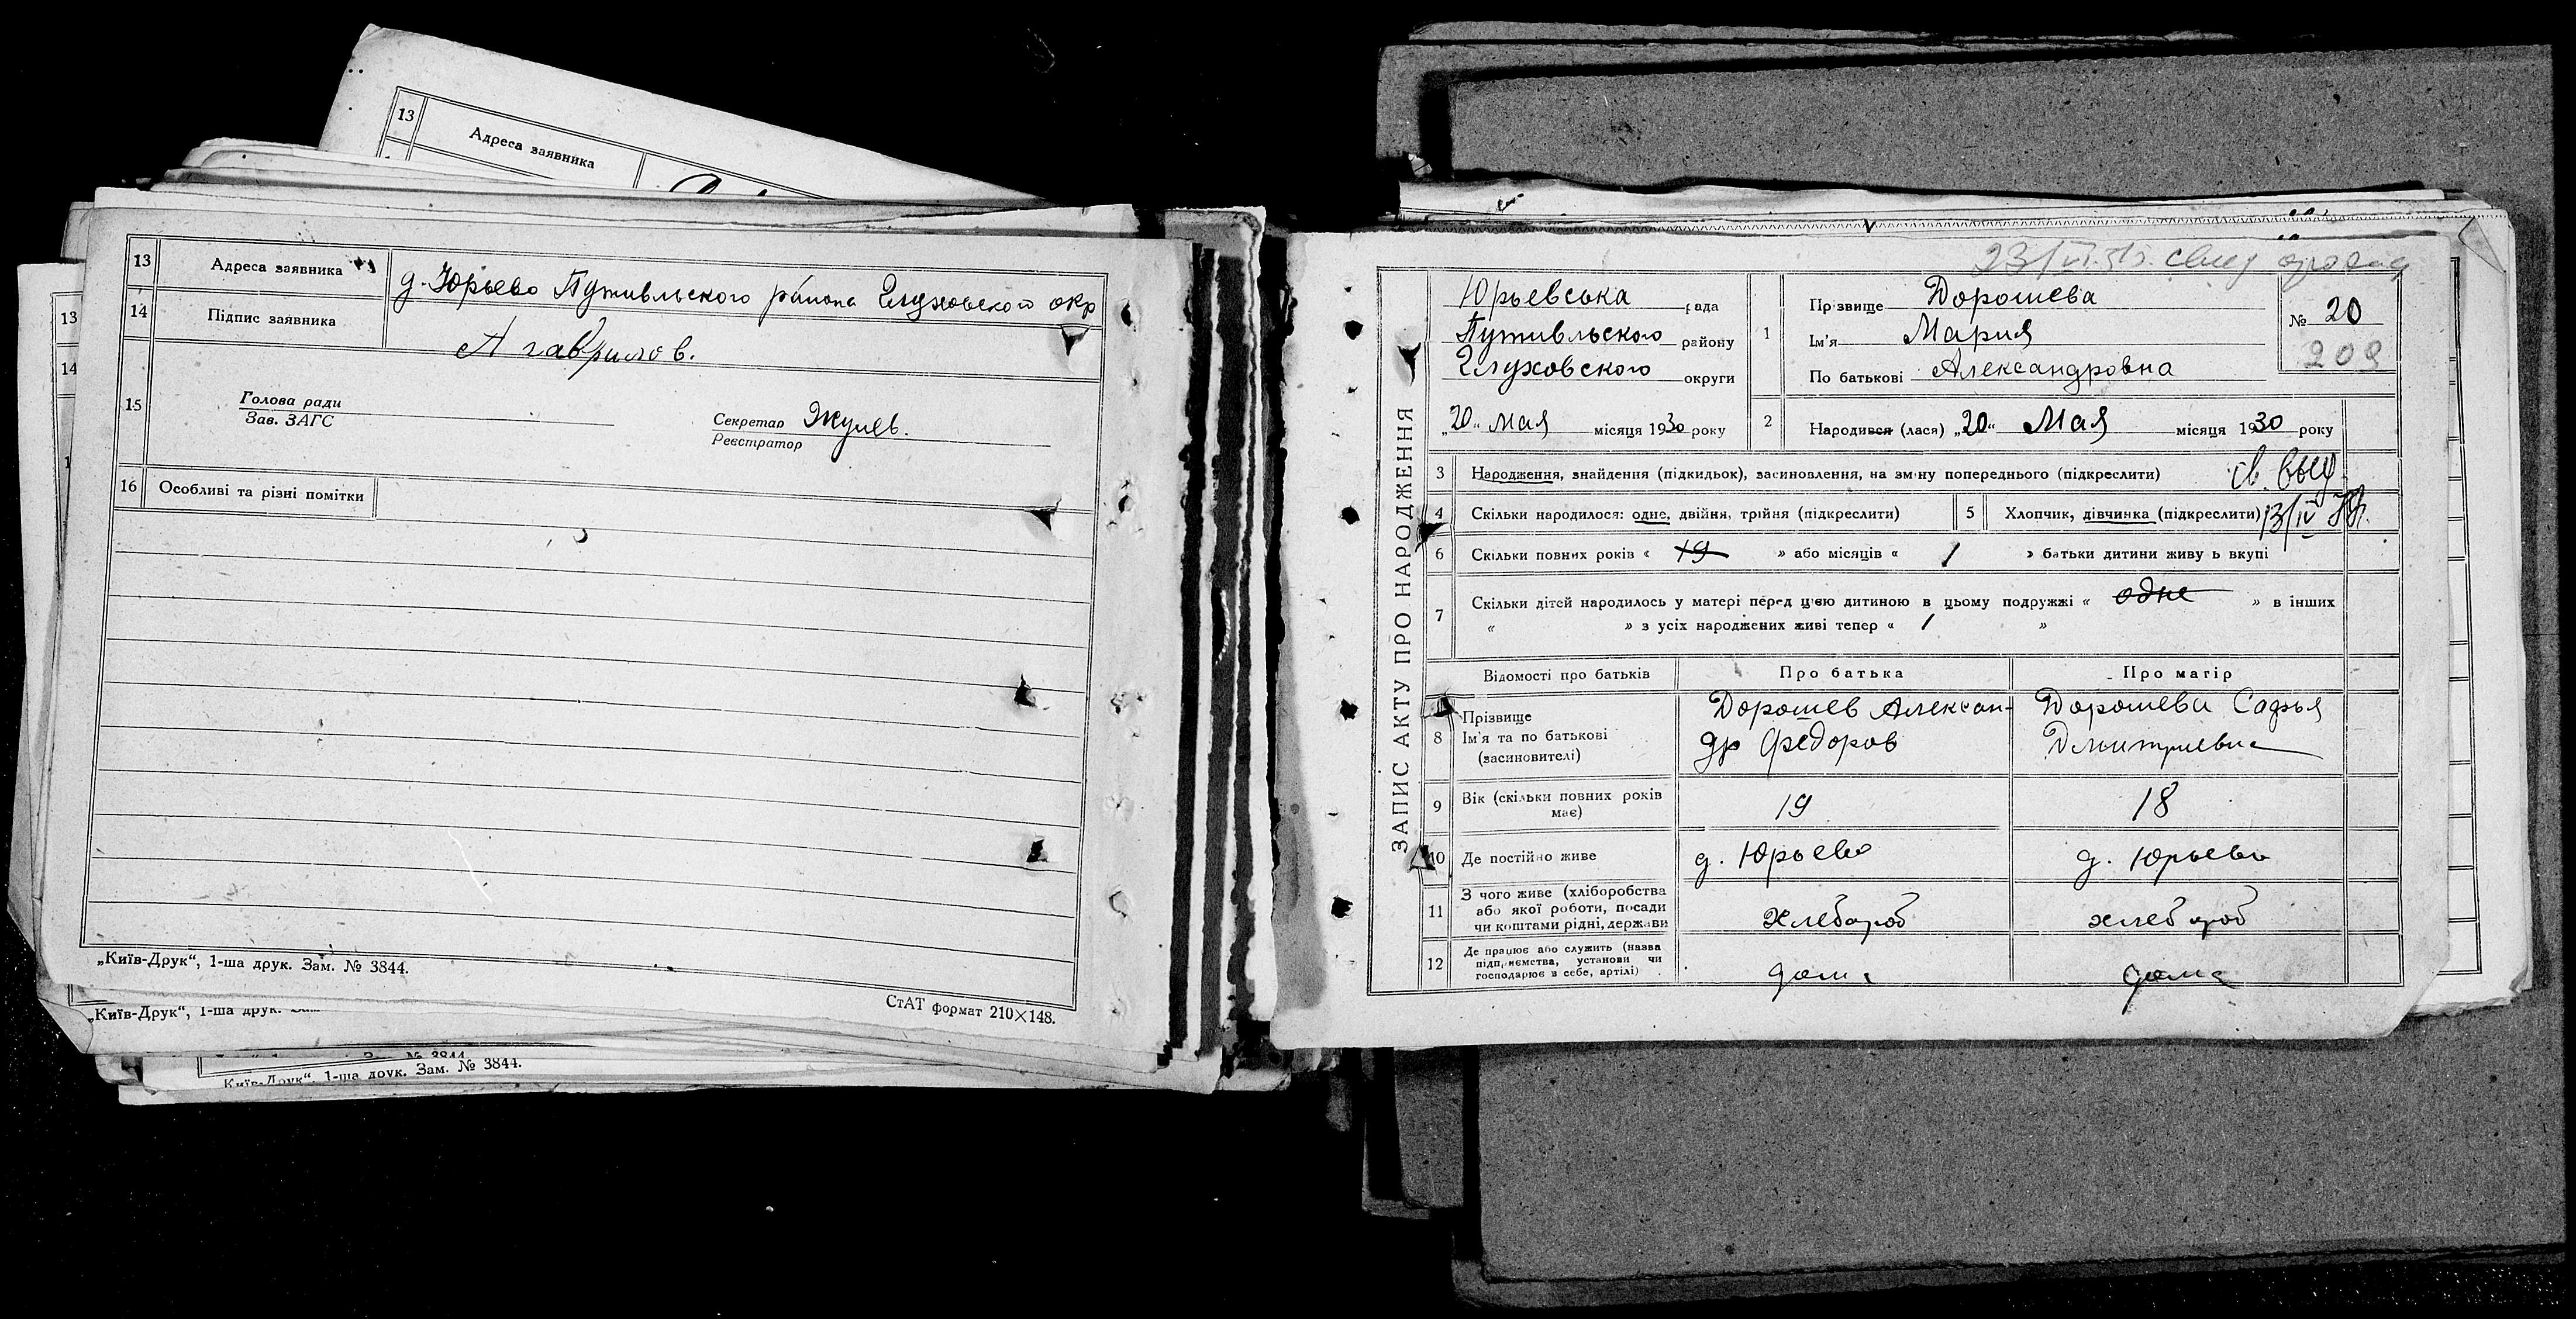 13
Адреса заявника
13
Адреса заявника
д. Юрьево Путивльского района Глуховского окр
14
Підпис заявника
А Гаврилов.
15
Голова ради
Зав. ЗАГС
Секретар Жулев.
Реєстратор
16
Особливі та різні помітки
„Київ-Друк“, 1-ша друк. Зам. № 3844.
СтАТ формат 210×148.
„Київ-Друк“, 1-ша друк.
Київ-Друк“, 1-ша друк. Зам. № 3844.
13
14
ЗАПИС АКТУ ПРО НАРОДЖЕННЯ
23/VI
Юрьевська рада
Путивльского району
Глуховского округи
„20“ мая місяця 1930 року
1
Прізвище Дорошева
Ім'я Мария
По батькові Александровна
№ 20
209
2
Народився (лася) „20“ Мая місяця 1930 року
3
Народження, знайдення (підкидьок), засиновлення, на зміну попереднього (підкреслити)
св. выд.
4
Скільки народилося: одне, двійня, трійня (підкреслити)
5
Хлопчик, дівчинка (підкреслити)
13/IV
6
Скільки повних років « 19 » або місяців « / » батьки дитини живуть вкупі
7
Скільки дітей народилось у матері перед цією дитиною в цьому подружжі « одне » в інших
« » з усіх народжених живі тепер « / »
Відомості про батьків
Про батька
Про матір
8
Прізвище
Ім'я та по батькові
(засиновителі)
Дорошев Алексан-
др Федоров
Дорошева Софья
Дмитриевна
9
Вік (скільки повних років
має)
19
18
10
Де постійно живе
д. Юрьево
д. Юрьево
11
З чого живе (хліборобства
або якої роботи, посади
чи коштами рідні, держави
хлебороб
хлебороб
12
Де працює або служить (назва
підприємства, установи чи
господарює в себе, артілі)
дома
дома